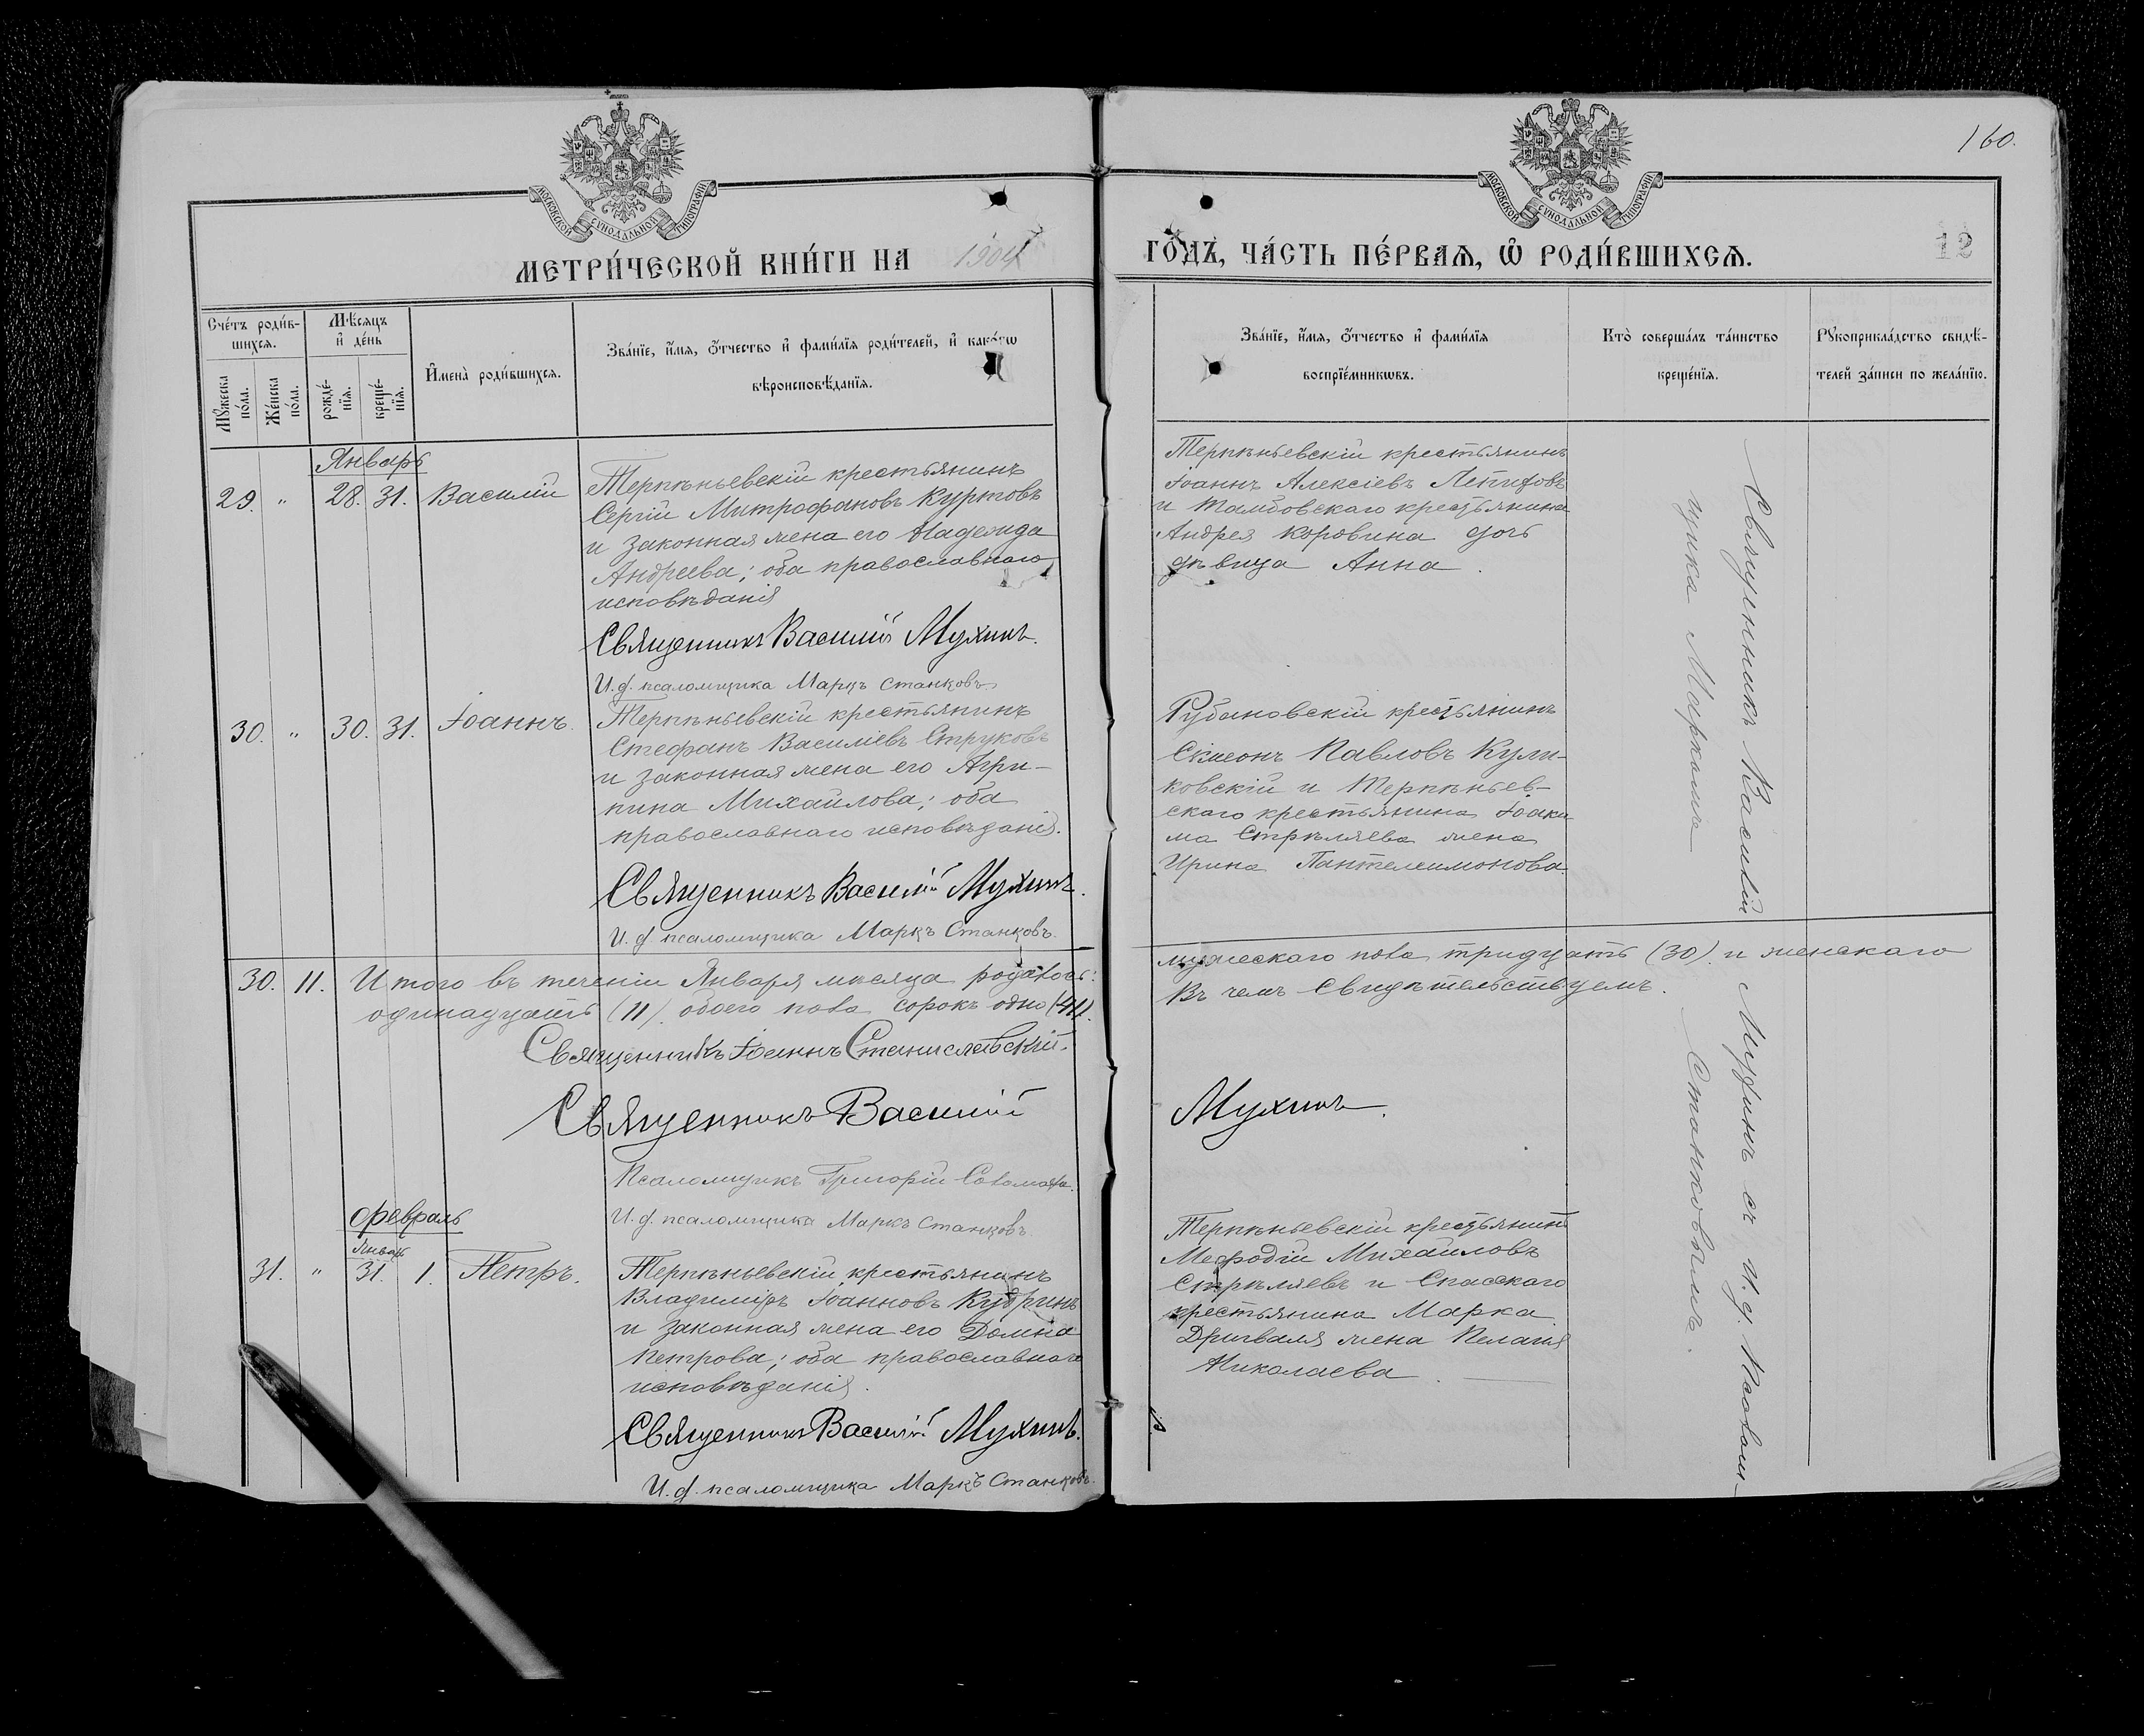 160.
МОСКОВСКОЙ СѴНОДАЛЬНОЙ ТИПОГРАФІИ
МОСКОВСКОЙ СѴНОДАЛЬНОЙ ТИПОГРАФІИ
МЕТРИ́ЧЕСКОЙ КНИ́ГИ НА 1904
ГО́ДЪ, ЧА́СТЬ ПЕ́РВАѦ, Ѡ҆ РОДИ́ВШИХСѦ.
12
Сче́тъ роди́в-
шихсѧ.
Мꙋ́жеска по́ла.
Же́нска по́ла.
Мѣ́сѧцъ
и҆ де́нь
рожде́-
нїѧ.
креще́-
нїѧ.
И҆мена̀ роди́вшихсѧ.
Зва́нїе, и҆́мѧ, ѻ҆́тчество и҆ фами́лїѧ роди́телей, и҆ како́гѡ
вѣроисповѣ́данїѧ.
Зва́нїе, и҆́мѧ, ѻ҆́тчество и҆ фами́лїѧ
воспрїе́мникѡвъ.
Кто̀ соверша́лъ та́инство
креще́нїѧ.
Рꙋкоприкла́дство свидѣ́-
телей за́писи по жела́нїю.
Январь
29. " 28. 31. Василій
Терпѣньевскій крестьянинъ
Сергій Митрофановъ Куртовъ
и законная жена его Надежда
Андреева; оба православнаго
исповѣданія
Священникъ Василій Мухинъ.
И.д. псаломщика Маркъ Станковъ
Терпѣньевскій крестьянинъ
Іоаннъ Алексіевъ
и Тамбовскаго крестьянина
Андрея Коровина дочь
дѣвица Анна.
30. " 30. 31. Іоаннъ.
Терпѣньевскій крестьянинъ
Стефанъ Василіевъ Струковъ
и законная жена его Агри-
пина Михайлова; оба
православнаго исповѣданія.
Священникъ Василій Мухинъ.
И.д. псаломщика Маркъ Станковъ.
Рубановскій крестьянинъ
Сімеонъ Павловъ Кули-
ковскій и Терпѣньев-
скаго крестьянина Іоаки
ма Стрѣляева жена
Ирина Пантелеимонова
30. 11. Итого въ теченіи Января мѣсяца родилось:
мужескаго пола тридцать (30). и женскаго
одинадцать (11). обоего пола сорокъ одно (41).
Въ чемъ свидѣтельствуемъ.
Священникъ Іоаннъ Станиславскій.
Священникъ Василій Мухинъ.
Псаломщикъ Григорій
И.д. псаломщика Маркъ Станковъ
Февраль
Январь
31. " 31. 1. Петръ.
Терпѣньевскій крестьянинъ
Владиміръ Іоанновъ Кудринъ
и законная жена его Домна
Петрова; оба православнаго
исповѣданія.
Священникъ Василій Мухинъ.
И.д. псаломщика Маркъ Станковъ.
Терпѣньевскій крестьянинъ
Мефодій Михаиловъ
Стрѣляевъ и Спасскаго
крестьянина Марка
Дригваля жена Пелагія
Николаева.
Священникъ Василій Мухинъ съ и.д. псалом-
щика Маркомъ Станковымъ.